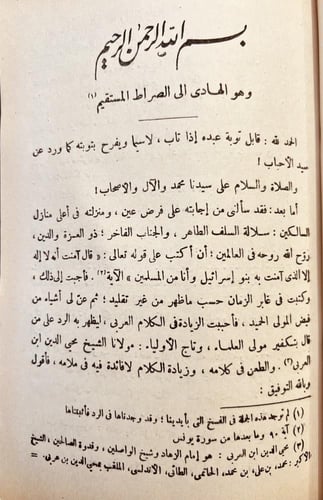 بسم الله الرحمن الرحيم
وهو الهادى الى الصراط المستقيم (١)
الحمد لله : قابل توبة عبده إذا تاب ، لاسيما ويفرح بتوبته كما ورد عن
سيد الأحباب !
والصلاة والسلام على سيدنا محمد والآل والأصحاب !
أما بعد : فقد سألنى من إجابته على فرض عين ، ومنزلته فى أعلى منازل
السالكين : سلالة السلف الطاهر ، والجناب الفاخر ؛ ذو العزة والدين ،
روح الله روحه فى العالمين ؛ أن أكتب على قوله تعالى : « قال آمنت أنه لا إله
إلا الذى آمنت به بنو إسرائيل وأنا من المسلمين » الآية (٢) . فأجبت إلى ذلك ،
وكتبت فى غابر الزمان حسب ماظهر من غير تقليد ؛ ثم عنّ لى أشياء من
فيض المولى الحميد ، فأحببت الزيادة فى الكلام العربى ، ليظهر به الرد على من
قال بتكفير مولى العلماء ، وتاج الأولياء : مولانا الشيخ محيى الدين ابن
العربى (٣) . والطعن فى كلامه ، وزيادة الكلام لافائدة فيه فى ملامه ، فأقول
وبالله التوفيق :
(١) لم توجد هذه الجملة فى النسخ التى بأيدينا ؛ وقد وجدناها فى الرد فأثبتناها
(٢) آية ٩٠ وما بعدها من سورة يونس
(٣) محيى الدين ابن العربى : هو إمام الزهاد وشيخ الواصلين ، وقدوة الصالحين ، الشيخ
الأكبر : محمد ، بن على ، بن محمد ، الحاتمى ، الطائى ، الأندلسى ، الملقب بمحيى الدين بن عربى -